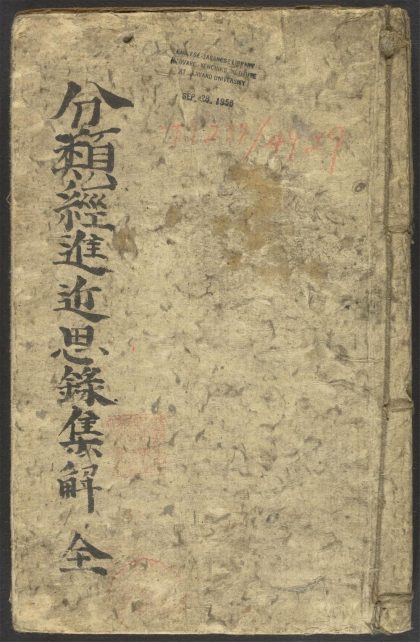 分類經進近思錄集解 全
CHINESE-JAPANESE LIBRARY
HARVARD-YENCHING INSTITUTE
AT HARVARD UNIVERSITY
SEP 28, 1956